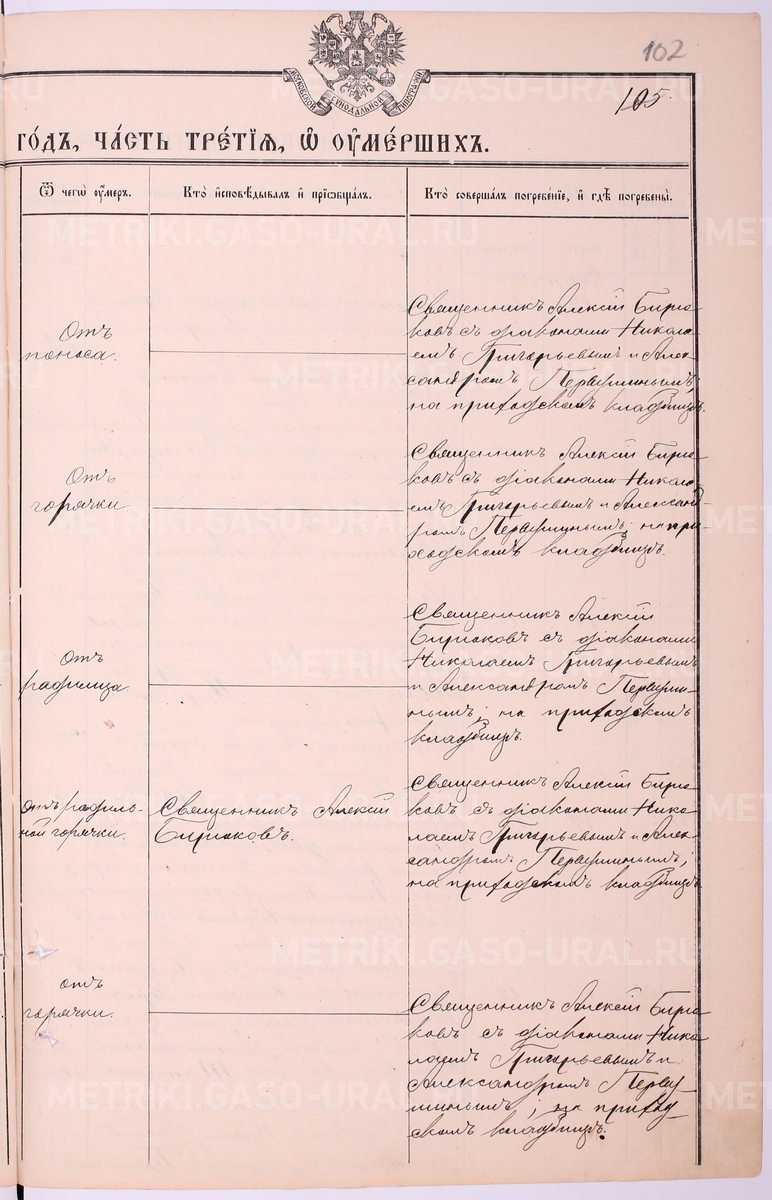 102
105
МОСКОВСКОЙ СѴНОДАЛЬНОЙ ТИПОГРАФІИ
ГО́ДЪ, ЧА́СТЬ ТРЕ́ТІѦ, Ѡ҆ ОУ҆МЕ́РШИХЪ.
Ѿ чегѡ̀ ᲂу҆́меръ.
Кто̀ и҆сповѣ́дывалъ и҆ прїѡбща́лъ.
Кто̀ соверша́лъ погребе́нїе, и҆ гдѣ̀ погребены̀.
Отъ
поноса.
Священникъ Алексій Бирю-
ковъ съ діаконами Никола-
емъ Григорьевымъ и Алек-
сандромъ Первушинымъ;
на приходскомъ кладбищѣ.
Отъ
горячки.
Священникъ Алексій Бирю-
ковъ съ діаконами Никола-
емъ Григорьевымъ и Александ-
ромъ Первушинымъ; на при-
ходскомъ кладбищѣ.
отъ
родимца.
Священникъ Алексій
Бирюковъ съ діаконами
Николаемъ Григорьевымъ
и Александромъ Первуши-
нымъ; на приходскомъ
кладбищѣ.
отъ родиль-
ной горячки.
Священникъ Алексій
Бирюковъ.
Священникъ Алексій Бирю-
ковъ съ діаконами Нико-
лаемъ Григорьевымъ и Алек-
сандромъ Первушинымъ;
на приходскомъ кладбищѣ.
отъ
горячки.
Священникъ Алексій Бирю-
ковъ съ діаконами Нико-
лаемъ Григорьевымъ и
Александромъ Перву-
шинымъ; на приход-
скомъ кладбищѣ.
METRIKI.GASO-URAL.RU